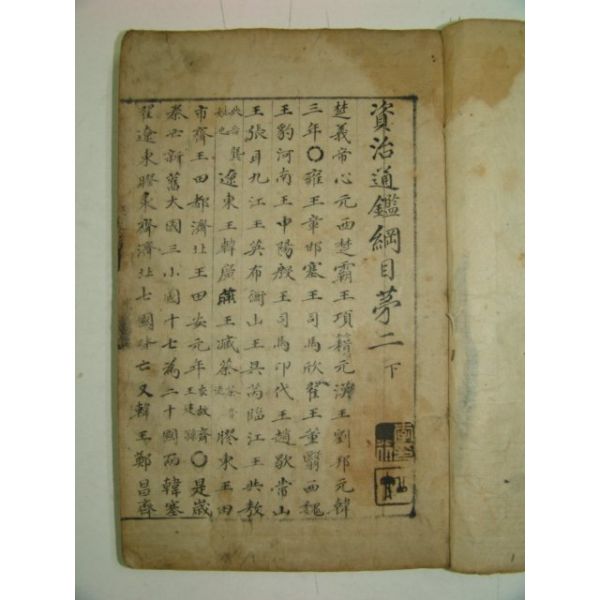 資治通鑑綱目苐二 下
楚義帝心元西楚霸王項籍元漢王劉邦元韓
三年〇雍王章邯塞王司馬欣翟王董翳西魏
王豹河南王申陽殷王司馬卬代王趙歇常山
王張耳九江王英布衡山王吳芮臨江王共敖
共音龔姓也遼東王韓廣燕王臧荼荼音膠東王田
市齊王田都濟北王田安元年故齊王建孫〇是歲
秦亡新舊大國三小國十七為二十國而韓塞
翟遼東膠東齊濟北七國皆亡又韓王鄭昌齊